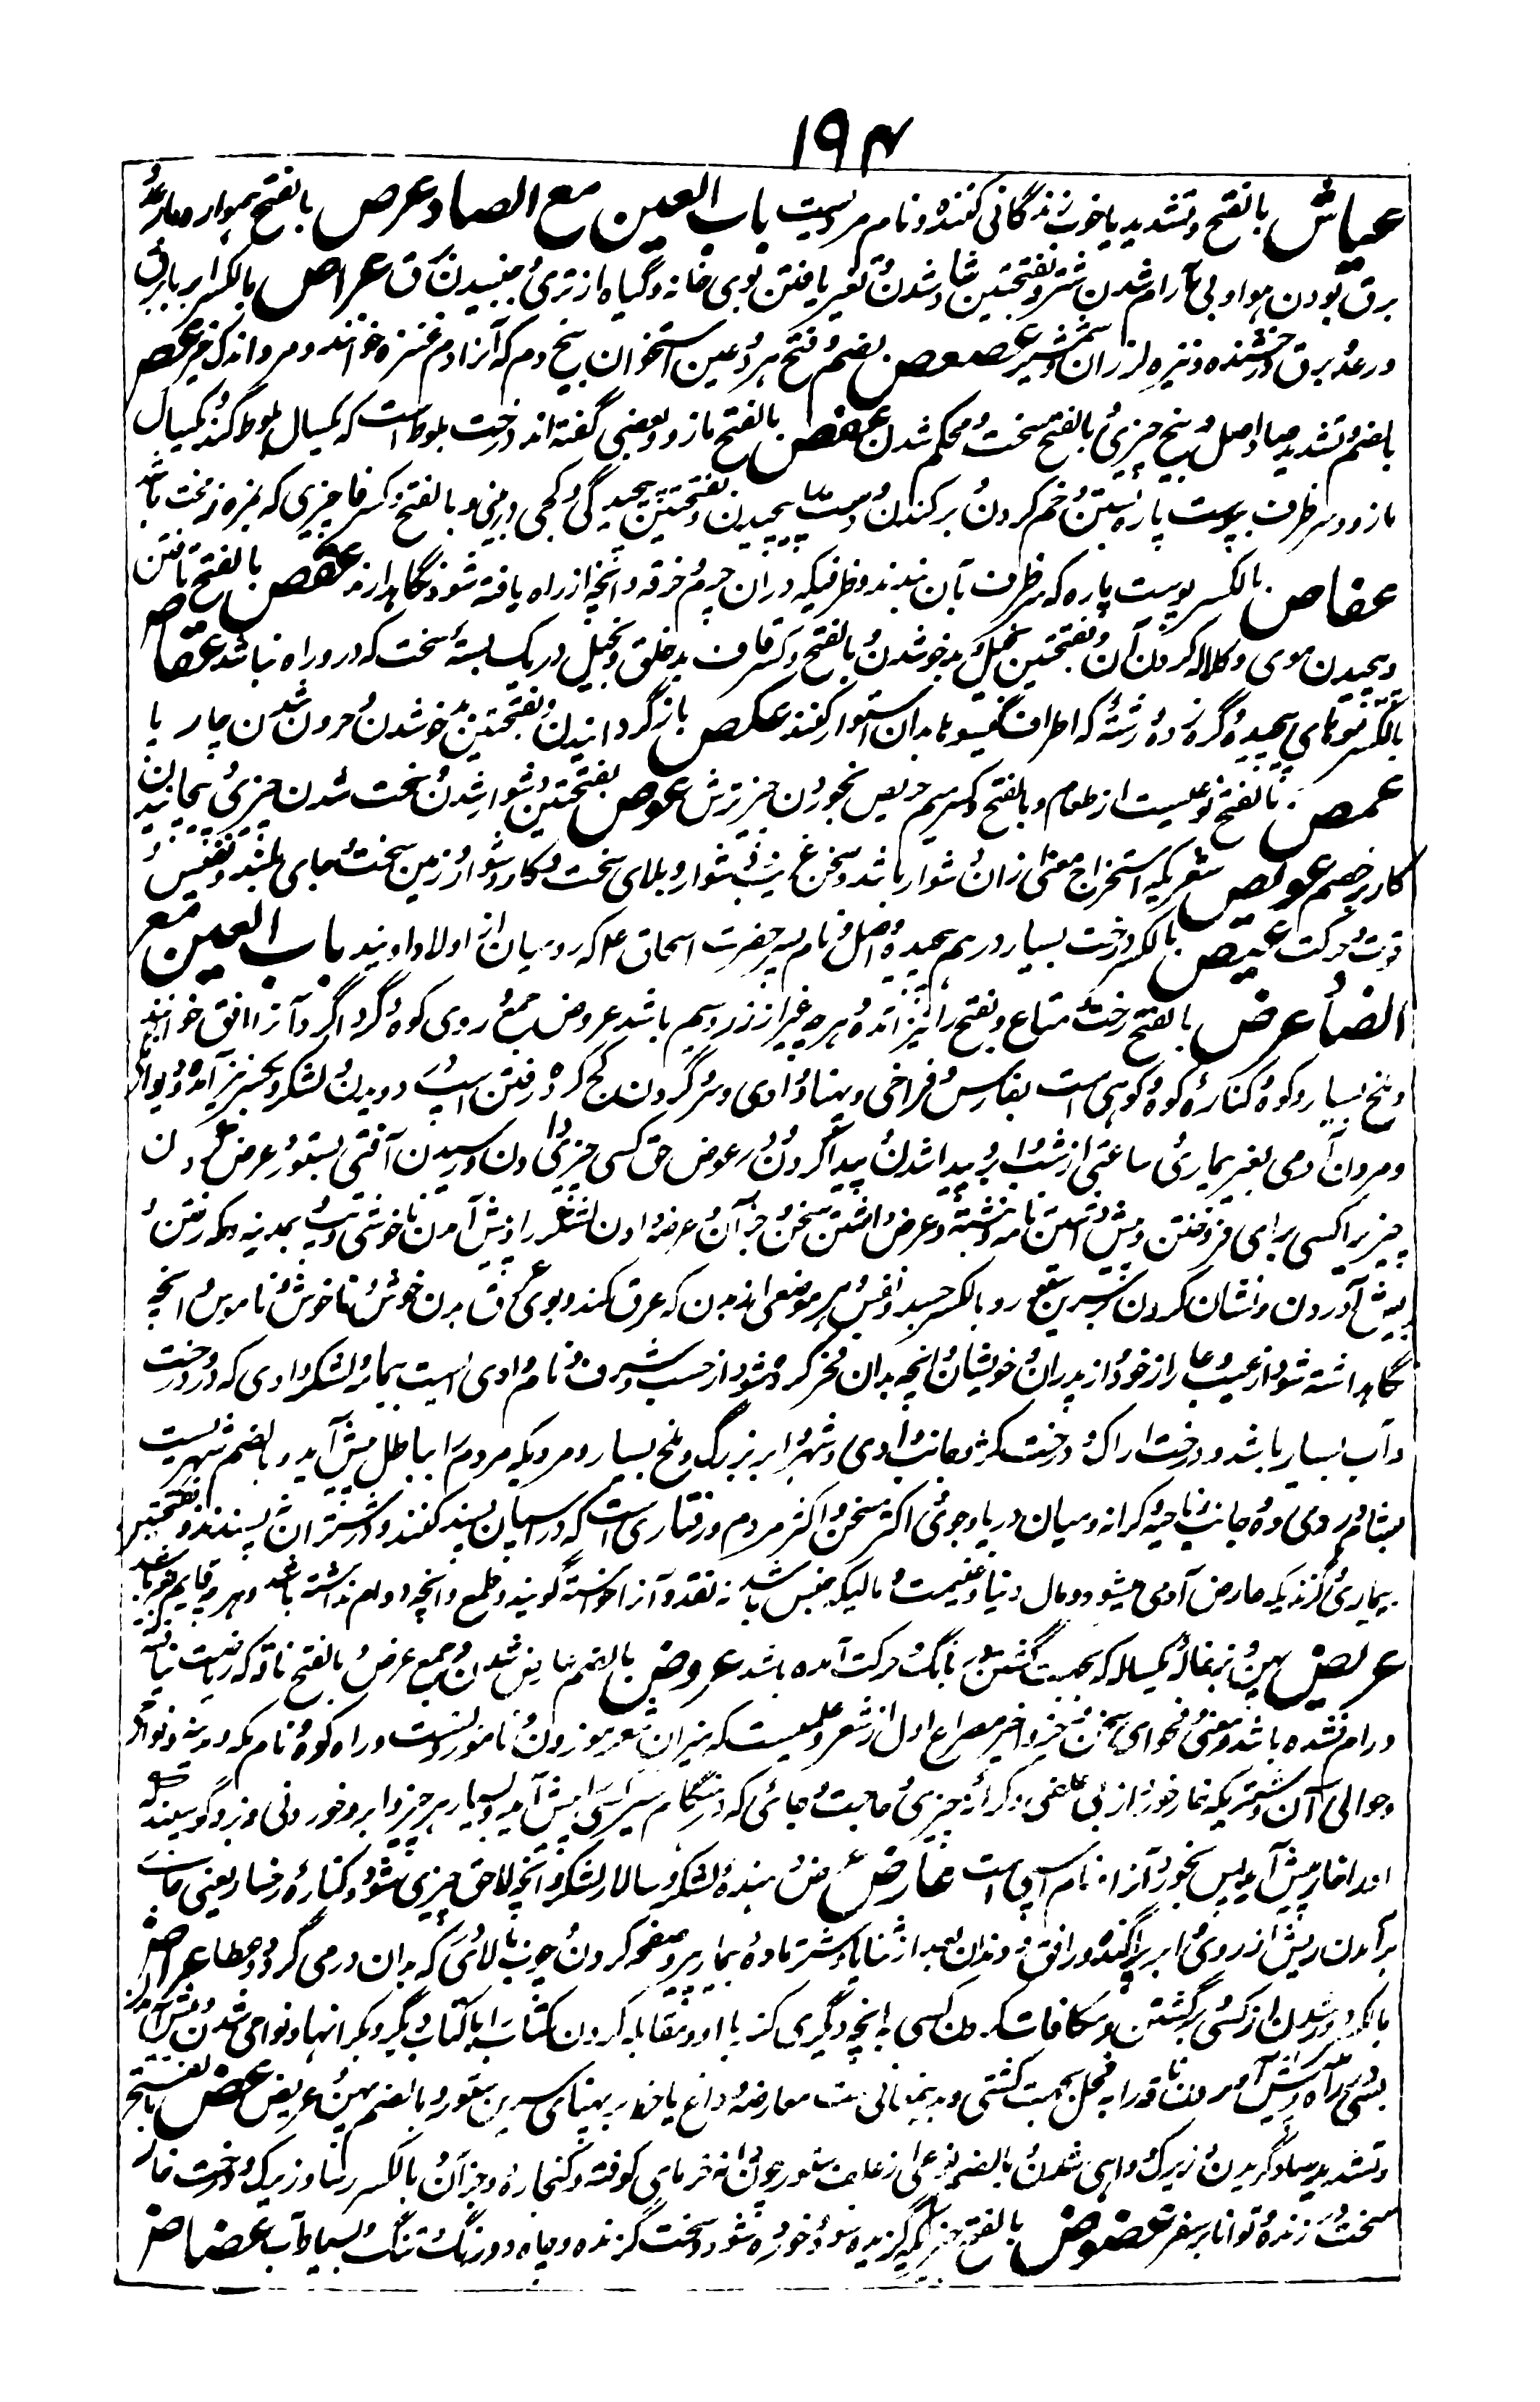 ۱۹۴
عیاش بالفتح وتشدید یا خوب زندگانی کننده و نام مردیست باب العین مع الصاد عرص بالفتح هموار
برق بودن هوا و بی آرام شدن شتر و بفتحتین شاد شدن و تغیر یافتن بوی خانه و گیاه از تری و جنبیدن برق عراص بالکسر ابر با برق
و رعد و برق درخشنده و نیزه لرزان و شمشیر عصعص بضم و فتح هر دو عین استخوان بیخ دم که آنرا دم غزه خوانند و مرد اندک خیر عص
بالضم و تشدید صاد اصل و بیخ چیزی و بالفتح سخت و محکم شدن عفص بالفتح مازو و بعضی گفته اند درخت بلوط است که یکسال بلوط کند و یکسال
مازو و سر ظرف بپوست پاره بستن و خم کردن و برکندن و دست پیچیدن و بفتحتین پیچیدگی و کجی در بینی و بالفتح و کسر فا چیزی که بمزه زمخت باشد
عفاص بالکسر پوست پاره که سر ظرف بآن بندند و ظرفیکه در ان چرم و خرقه و آنچه از راه یافته شود نگاهدارند عقص بالفتح بافتن
و پیچیدن موی و کلاله کردن آن و بفتحتین بخیل و بدخو شدن و بالفتح و کسر قاف بدخلق و بخیل و ریگ بسته سخت که درو راه نباشد عقاص
بالکسر موهای پیچیده و گره زده و رشته که اطراف گیسو ها بدان استوار کنند عکص بازگردانیدن و بفتحتین بدخو شدن و حرون شدن چارپا
عمص بالفتح نوعیست از طعام و بالفتح و کسر میم حریص بخوردن چیز ترش عوص بفتحتین دشوار شدن و سخت شدن چیزی و پیچانیدن
کار بر خصم عویص شعریکه استخراج معنی ازان دشوار باشد و سخن غریب و دشوار و بلای سخت و کار دشوار و زمین سخت و جای بلند و نفس و
قوت و حرکت عیص بالکسر درخت بسیار درهم پیچیده و اصل و نام پسر حضرت اسحاق ع که رومیان از اولاد اویند باب العین مع
الضاد عرض بالفتح رخت و متاع و بفتح را نیز آمده و هرچه غیر از زر و سیم باشد عروض جمع و روی کوه و گرداگرد آنرا افق خوانند
و ملخ بسیار و کوه و کناره کوه و کوهی است بفارس و فراخی و پهنا و وادی و سر گردن کج کرده رفتن اسپ و دویدن و لشکر و بکسر نیز آمده و دیوانگی
و مردن آدمی بغیر بیماری و ساعتی از شب و ابر و پیدا شدن و پیدا کردن و عوض حق کسی چیزی دادن و رسیدن آفتی بستور و عرض کردن
چیز برا کسی برای فروختن و پیش داشتن نامه نبشته و عرض داشتن سخن و جز آن و عرض دادن لشکر را و پیش آمدن ناخوشی و تب و بمدینه و مکه رفتن و
پیش آوردن و نشان کردن سرین ستور و بالکسر جسد و نفس و هر موضعی از بدن که عرق کند و بوی عرق بدن خوش و ناخوش و ناموس و آنچه
نگاهداشته شود از عیب و عار از خود و از پدران و خویشان و آنچه بدان فخر کرده شود از حسب و شرف و نام وادی است بیمامه و لشکر و وادی که درو درخت
و آب بسیار باشد و درخت اراک و درخت گز و جانب وادی و شهر و ابر بزرگ و ملخ بسیار و مردیکه مردم را بباطل پیش آید و بالضم شهریست
بشام و رودی و ده و جانب و ناحیه و کرانه و میان دریا و جوی و اکثر سخن و اکثر مردم و رفتاری است که در اسپان پسند کنند و در شتران نپسندند و بفتحتین
بیماری و گزندیکه عارض آدمی میشود و مال دنیا و غنیمت و مالیکه جنس باشد نه نقد و آنرا خواسته گویند و طمع و آنچه دوام نداشته باشد و هرچه قایم بغیر باشد
عریض پهن و بزغاله یکساله که بجهت گشتن ببانگ و حرکت آمده باشد عروض بالضم نمایش شدن و جمع عرض و بالفتح ناقه که ریاضت نیافته
و رام نشده باشد و معنی و فحوای سخن و چیز و اخیر مصراع اول از شعر و علمیست که میزان شعر موزون و ناموزونست و راه کوه و نام مکه و مدینه و نواحی
و حوالی آن و شتریکه خار خورد از بی علفی و کرانه چیزی و حاجت و جائی که در هنگام سیر پیش آید و بسیار هر چیز و ابر و خوردنی و بز و گوسپند که
اورا خار پیش آید پس بخورد آنرا و نام اسپی است عارض عرض دهنده لشکر و سالار لشکر و آنچه لاحق چیزی شود و کناره رخسار یعنی جای
برآمدن ریش از روی و ابر پراکنده در افق و دندان بعد از ثنایا و شتر ماده بیمار و صفحه گردن و چوب بالای که بدان در می گردد و عطا عراض
بالکسر دور شدن از کسی و برگشتن و مکافات کردن کسی به آنچه دیگری کند با او و مقابله کردن کتاب با کتاب دیگر و بکرانها و نواحی شدن و پیش آمدن
بشی در راه و پیش آوردن ناقه را به فحل بجهت کشتی و بدین معانی ست معارضه و داغ یا خط بر پهنای سرین ستور و بالضم پهن و عریض عض بالفتح
و تشدید ضاد گزیدن و زیرک و داهی شدن و بالضم نوعی از علف ستور چون دانه خرمای کوفته و کنجاره و جز آن و بالکسر رسا و زیرک و درخت خار
سخت و زننده و توانا بر سفر عضوض بالفتح چیزیکه گزیده شود و خورده شود و سخت گزنده و چاه دور تنگ و بسیار آب عضاض